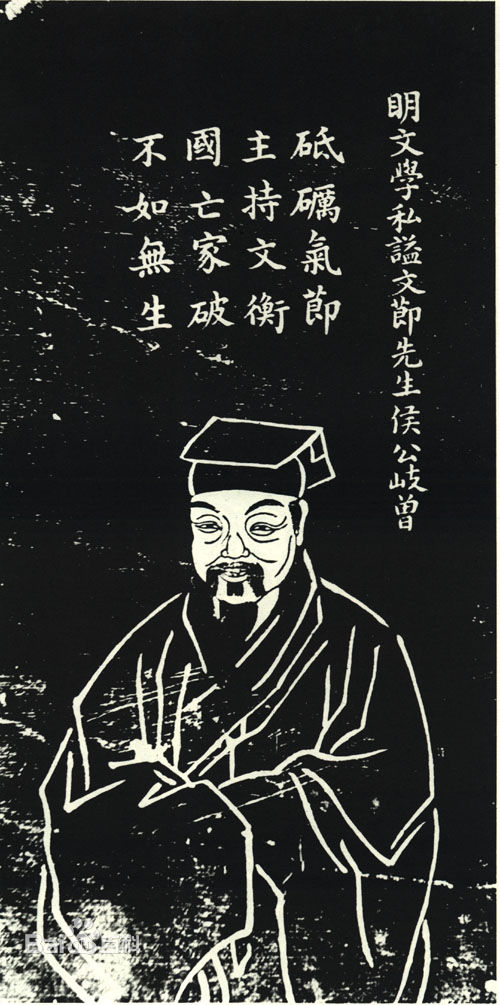 明文學私謚文節先生侯公岐曾
砥礪氣節
主持文衡
國亡家破
不如無生
Baidu百科